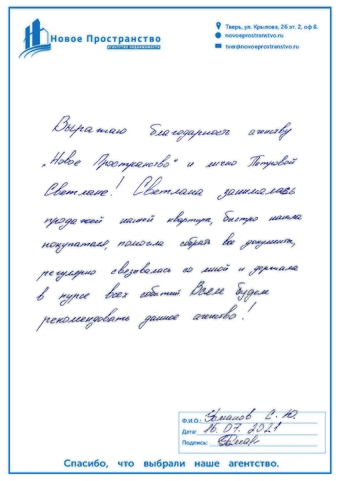 Новое Пространство
агентство недвижимости
Тверь, ул. Крылова, 26 эт. 2, оф 8.
novoeprostranstvo.ru
tver@novoeprostranstvo.ru
Выражаю благодарность агенству
„Новое Пространство“ и лично Петровой
Светлане! Светлана занималась
продажей нашей квартиры, быстро нашла
покупателя, помогла собрать все документы,
регулярно связывалась со мной и держала
в курсе всех событий. Всем будем
рекомендовать данное агенство!
Ф.И.О.: С. Ю.
Дата: 16. 07. 2021
Подпись:
Спасибо, что выбрали наше агентство.